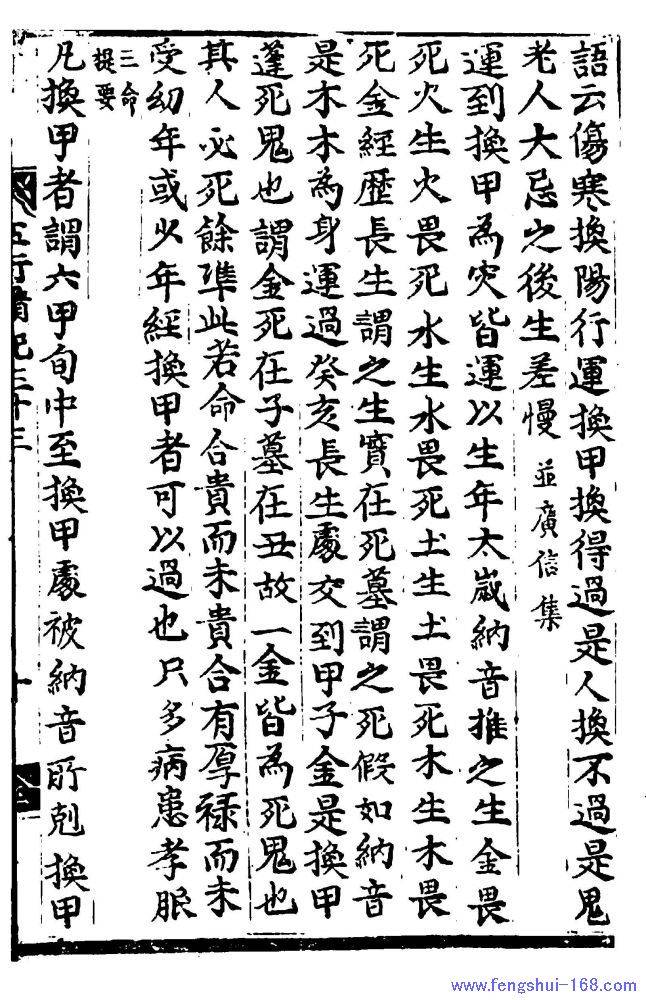 語云傷寒換陽行運換甲換得過是人換不過是鬼
老人大忌之後生差慢 並廣信集
運到換甲為灾皆運以生年太歲納音推之生金畏
死火生火畏死水生水畏死土生土畏死木生木畏
死金經歷長生謂之生實在死墓謂之死假如納音
是木木為身運過癸亥長生處交到甲子金是換甲
逢死鬼也謂金死在子墓在丑故一金皆為死鬼也
其人必死餘準此若命合貴而未貴合有厚祿而未
受幼年或少年經換甲者可以過也只多病患孝服
三命
提要
凡換甲者謂六甲旬中至換甲處被納音所剋換甲
五行精紀三十三
www.fengshui-168.com